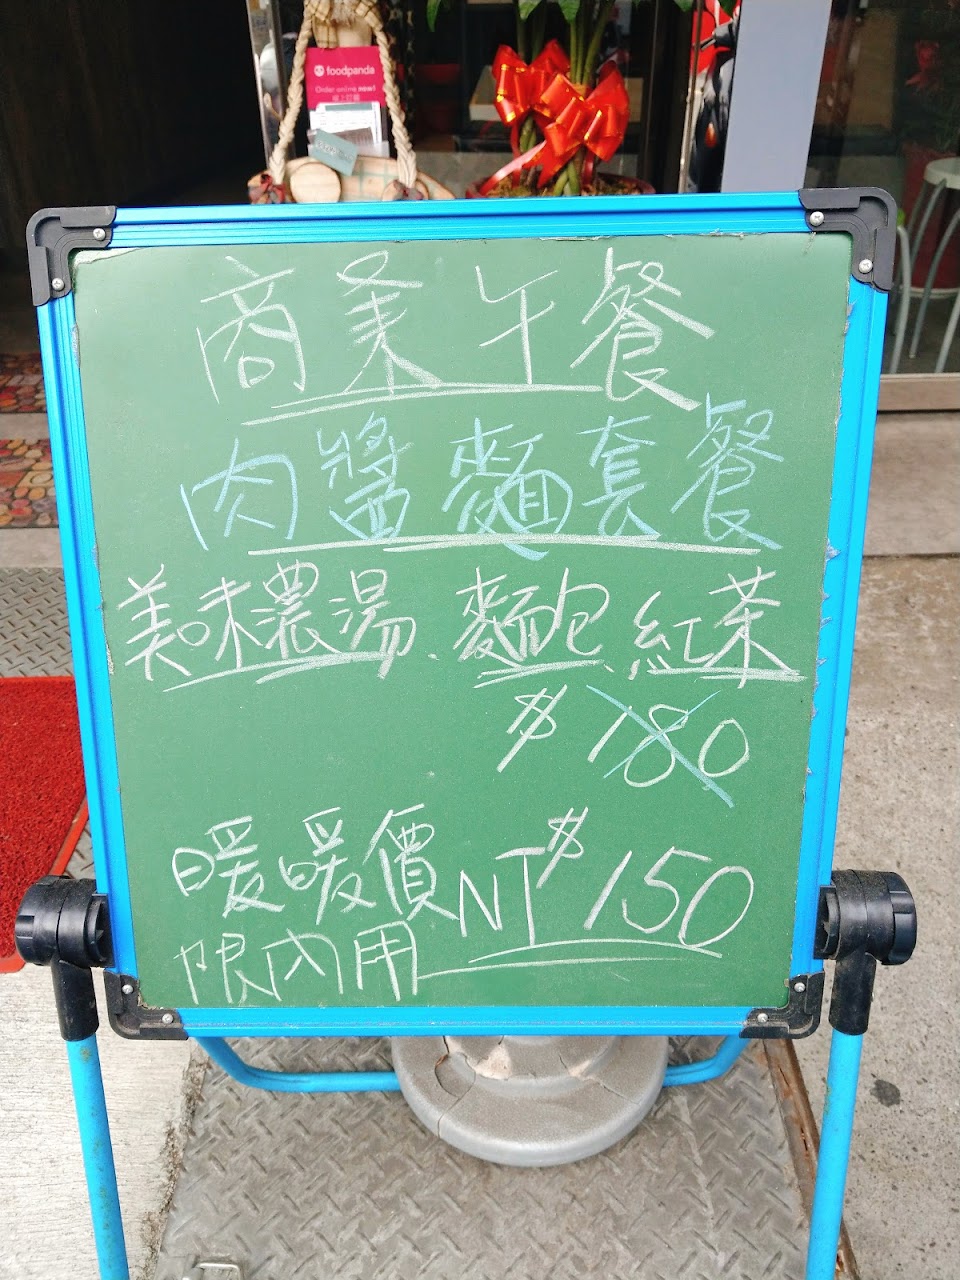 foodpanda
Order online now!
商業午餐
肉醬麵套餐
美味濃湯、麵包、紅茶
$180
暖暖價NT$150
限內用